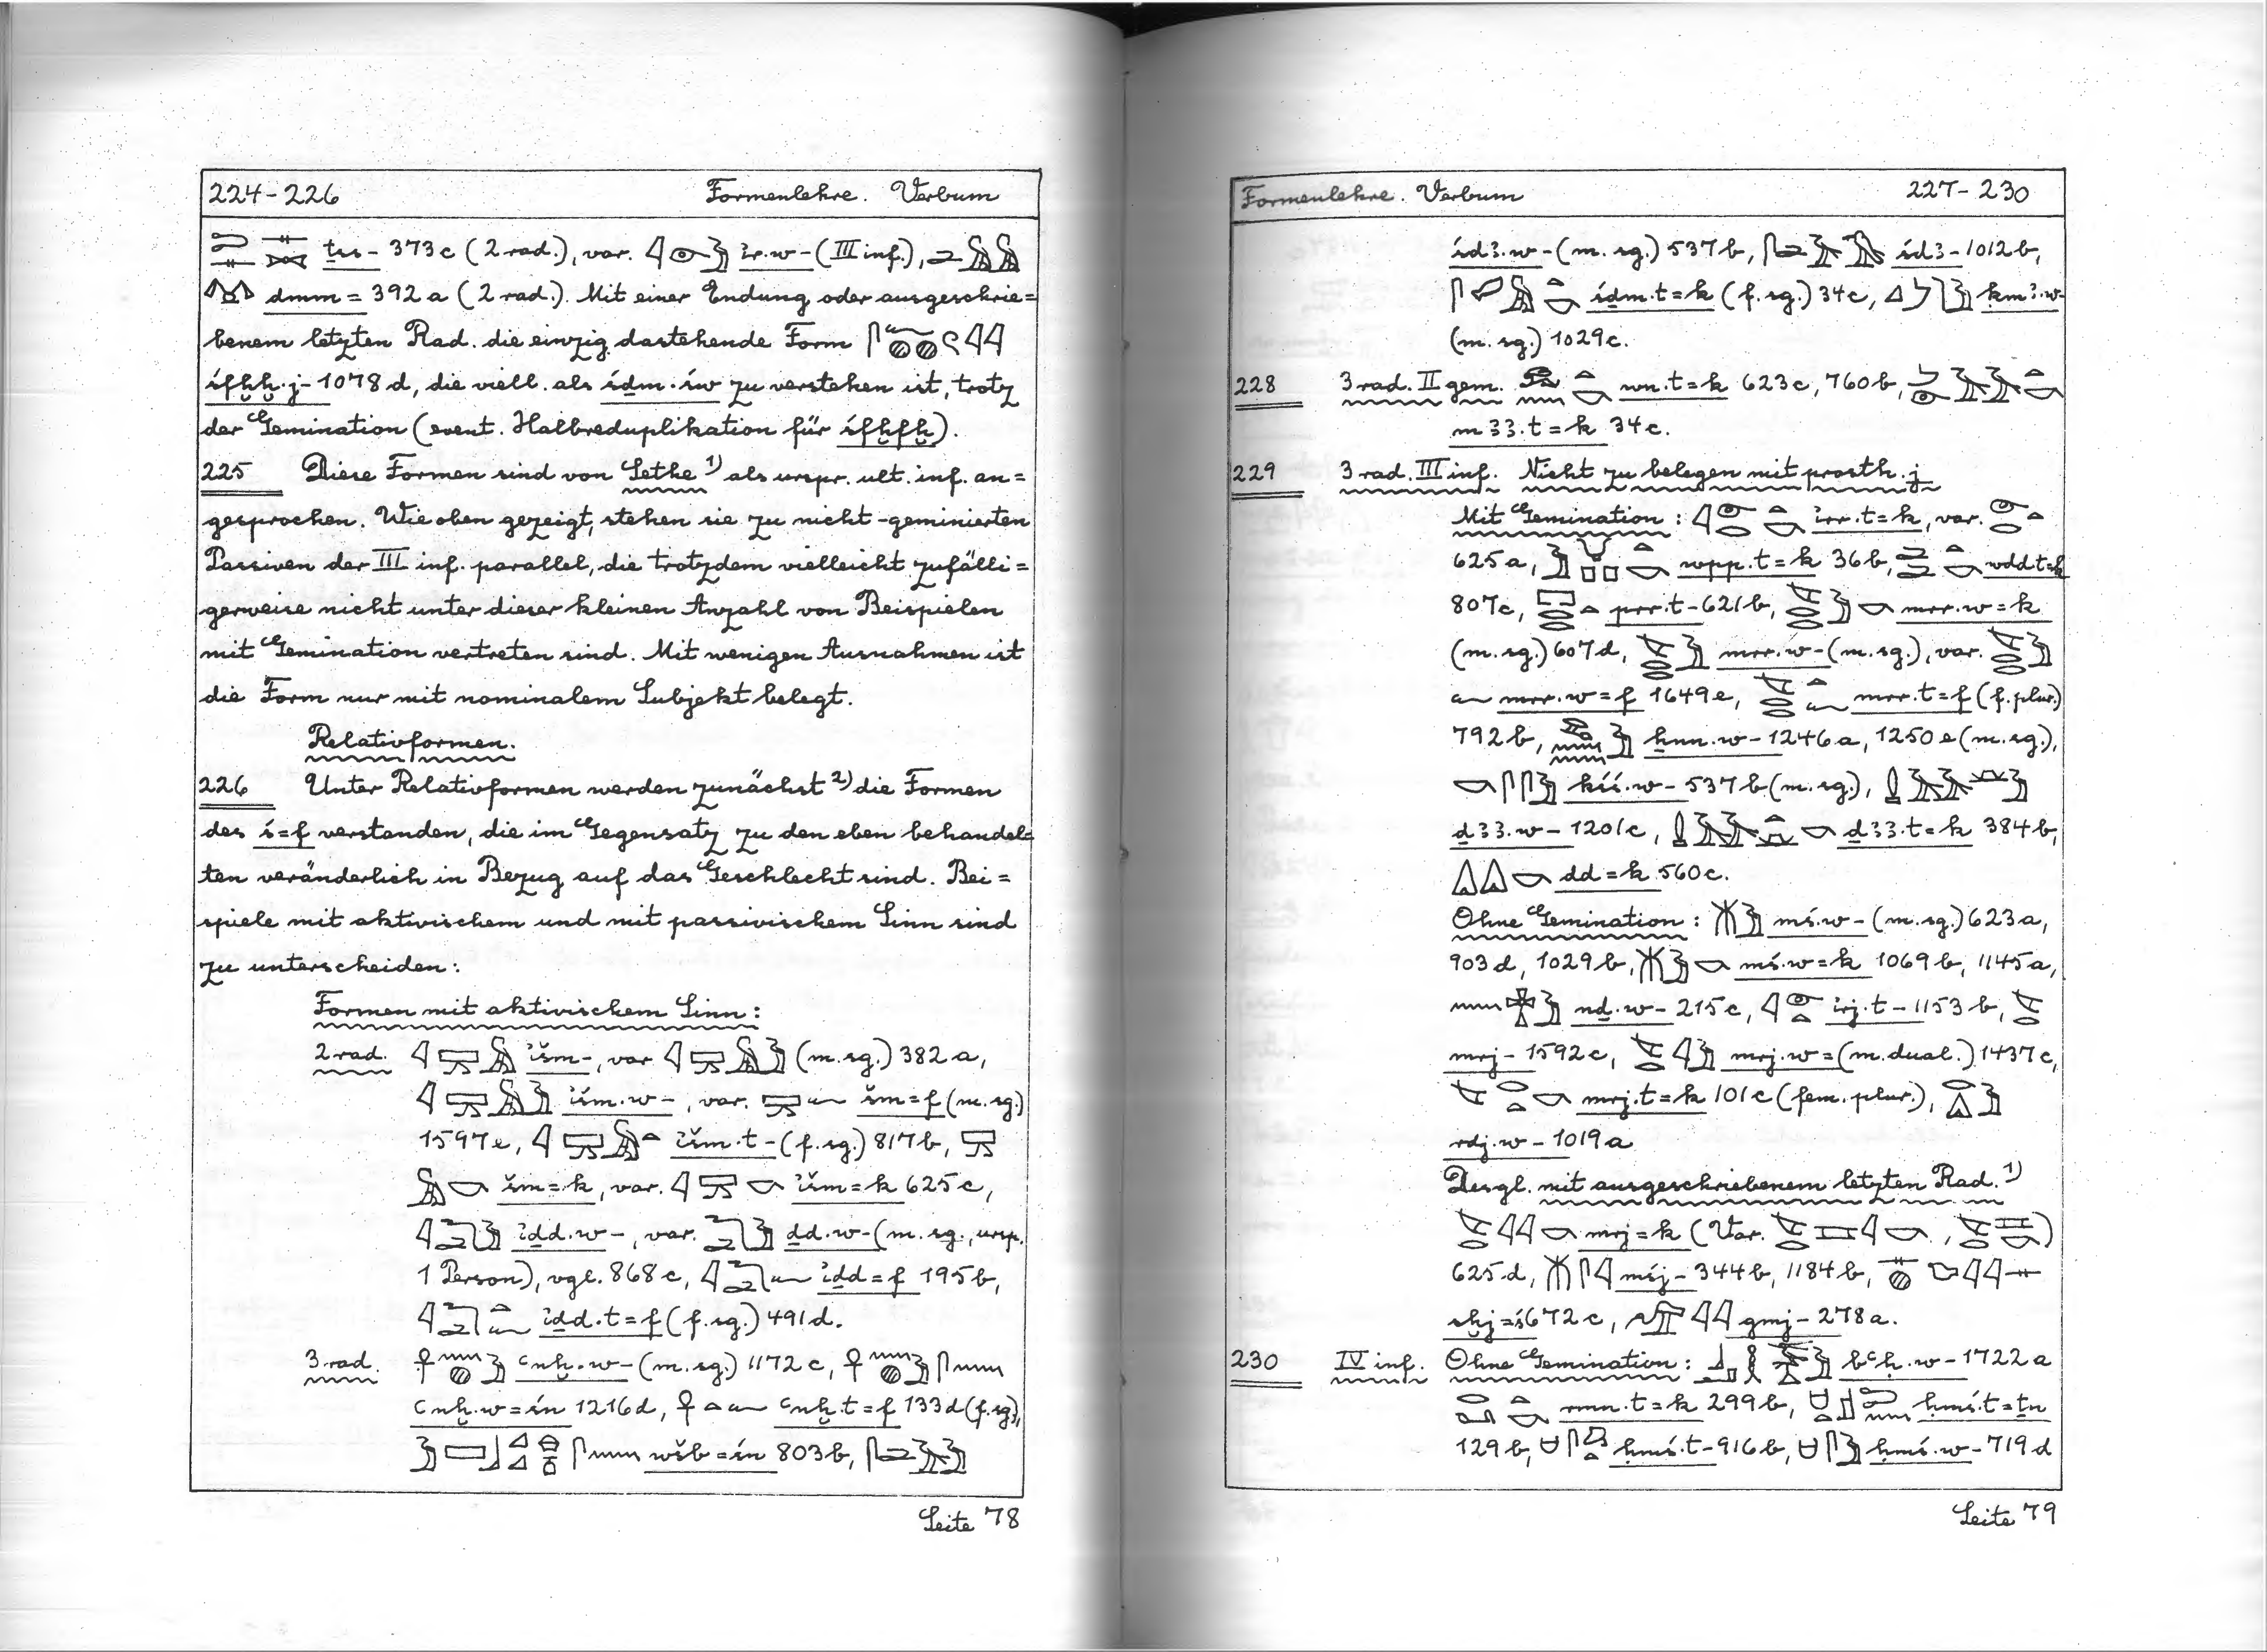 224-226 Formenlehre. Verbum
ṯss- 373c (2 rad.), var. 𓇋𓁹𓅱 ir.w- (III inf.),
dmm= 392a (2 rad.). Mit einer Endung oder ausgeschrie=
benem letzten Rad. die einzig dastehende Form
śfḫḫ.j- 1078d, die viell. als śḏm.św zu verstehen ist, trotz
der Gemination (event. Halbreduplikation für śfḫfḫ).
225 Diese Formen sind von Sethe 1) als urspr. ult. inf. an=
gesprochen. Wie oben gezeigt, stehen sie zu nicht-geminierten
Passiven der III inf. parallel, die trotzdem vielleicht zufälli=
gerweise nicht unter dieser kleinen Anzahl von Beispielen
mit Gemination vertreten sind. Mit wenigen Ausnahmen ist
die Form nur mit nominalem Subjekt belegt.
Relativformen.
226 Unter Relativformen werden zunächst 2) die Formen
des ś=f verstanden, die im Gegensatz zu den eben behandel=
ten veränderlich in Bezug auf das Geschlecht sind. Bei=
spiele mit aktivischem und mit passivischem Sinn sind
zu unterscheiden:
Formen mit aktivischem Sinn:
2 rad. 𓇋𓈙𓅓 išm-, var. 𓇋𓈙𓅓𓅱 (m. sg.) 382a,
𓇋𓈙𓅓𓅱 išm.w-, var. 𓈙𓆑 šm=f (m. sg.)
1597e, 𓇋𓈙𓅓𓏏 išm.t- (f. sg.) 817b, 𓈙
𓅓𓎡 šm=k, var. 𓇋𓈙𓎡 išm=k 625c,
𓇋𓆓𓂧𓅱 iḏd.w-, var. 𓆓𓂧𓅱 ḏd.w- (m. sg., ursp.
1 Person), vgl. 868c, 𓇋𓆓𓂧𓆑 iḏd=f 195b,
𓇋𓆓𓂧𓏏𓆑 iḏd.t=f (f. sg.) 491d.
3 rad. 𓋹𓈖𓐍𓅱 ꜥnḫ.w- (m. sg.) 1172c, 𓋹𓈖𓐍𓅱𓋴𓈖
ꜥnḫ.w=śn 1216d, 𓋹𓏏𓆑 ꜥnḫ.t=f 133d (f. sg.),
wšb=śn 803b,
Seite 78
Formenlehre. Verbum 227-230
śdꜣ.w- (m. sg.) 537b, śdꜣ- 1012b,
śḏm.t=k (f. sg.) 34c, ḳmꜣ.w-
(m. sg.) 1029c.
228 3 rad. II gem. 𓃹𓈖𓏏𓎡 wn.t=k 623c, 760b,
mꜣꜣ.t=k 34c.
229 3 rad. III inf. Nicht zu belegen mit prosth. j
Mit Gemination: 𓇋𓁹𓂋𓏏𓎡 irr.t=k, var. 𓁹𓂋𓏏
625a, wpp.t=k 36b, wdd.t=k
807c, 𓉐𓂋𓂋𓏏 prr.t- 621b, 𓌸𓂋𓂋𓅱𓎡 mrr.w=k
(m. sg.) 607d, 𓌸𓂋𓂋𓅱 mrr.w- (m. sg.), var. 𓌸𓂋𓂋𓅱
𓆑 mrr.w=f 1649e, 𓌸𓂋𓂋𓏏𓆑 mrr.t=f (f. plur.)
792b, ẖnn.w- 1246a, 1250e (m. sg.),
𓎡𓋴𓋴𓅱 kśś.w- 537b (m. sg.),
ḏꜣꜣ.w- 1201c, ḏꜣꜣ.t=k 384b,
𓏙𓏙𓎡 dd=k 560c.
Ohne Gemination: 𓄟𓅱 mś.w- (m. sg.) 623a,
903d, 1029b, 𓄟𓅱𓎡 mś.w=k 1069b, 1145a,
nḏ.w- 215c, 𓇋𓁹𓏏 irj.t- 1153b, 𓌸𓂋
mrj- 1592c, 𓌸𓂋𓇋𓅱 mrj.w= (m. dual.) 1437c,
𓌸𓂋𓏏𓎡 mrj.t=k 101c (fem. plur.), 𓂋𓏙𓅱
rdj.w- 1019a
Desgl. mit ausgeschriebenem letzten Rad. 1)
𓌸𓂋𓇋𓇋𓎡 mrj=k (Var. )
625d, 𓄟𓋴𓇋 mśj- 344b, 1184b,
sḫj=ś 672c, 𓅠𓇋𓇋 gmj- 278a.
230 IV inf. Ohne Gemination: bꜥḥ.w- 1722a
rmn.t=k 299b, ḥmś.t=ṯn
129b, ḥmś.t- 916b, ḥmś.w- 719d
Seite 79